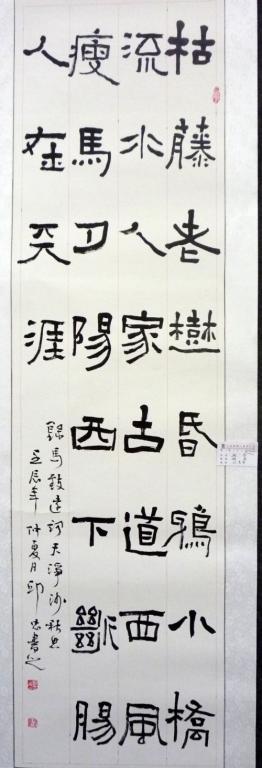 枯藤老樹昏鴉小橋
流水人家古道西風
瘦馬夕陽西下斷腸
人在天涯
錄馬致遠詞天淨沙秋思
壬辰年仲夏月邱書之